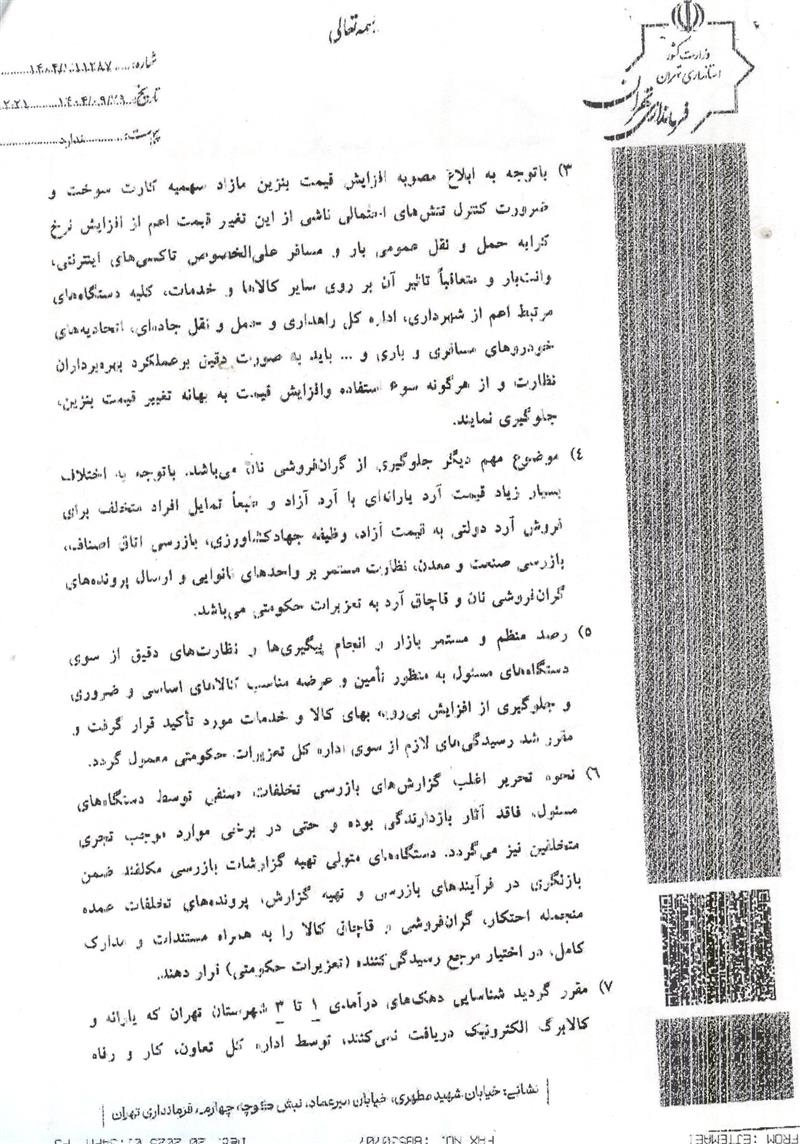 بسمه تعالی
وزارت کشور
استانداری تهران
فرمانداری تهران
شماره: ۱۴۰۴/۱۰۱۱۲۸۷
تاریخ: ۱۴۰۴/۰۹/۲۹
پیوست: ندارد
۳) باتوجه به ابلاغ مصوبه افزایش قیمت بنزین مازاد سهمیه کارت سوخت و
ضرورت کنترل تنش‌های احتمالی ناشی از این تغیر قیمت اعم از افزایش نرخ
کرایه حمل و نقل عمومی بار و مسافر علی‌الخصوص تاکسی‌های اینترنتی،
وانت‌بار و متعاقباً تاثیر آن بر روی سایر کالاها و خدمات، کلیه دستگاه‌های
مرتبط اعم از شهرداری، اداره کل راهداری و حمل و نقل جاده‌ای، اتحادیه‌های
خودروهای مسافری و باری و ... باید به صورت دقیق برعملکرد بهره‌برداران
نظارت و از هرگونه سوء استفاده وافزایش قیمت به بهانه تغییر قیمت بنزین،
جلوگیری نمایند.
۴) موضوع مهم دیگر جلوگیری از گران‌فروشی نان می‌باشد. باتوجه به اختلاف
بسیار زیاد قیمت آرد یارانه‌ای با آرد آزاد و طبعاً تمایل افراد متخلف برای
فروش آرد دولتی به قیمت آزاد، وظیفه جهادکشاورزی، بازرسی اتاق اصناف،
بازرسی صنعت و معدن، نظارت مستمر بر واحدهای نانوایی و ارسال پرونده‌های
گران‌فروشی نان و قاچاق آرد به تعزیرات حکومتی می‌باشد.
۵) رصد منظم و مستمر بازار و انجام پیگیری‌ها و نظارت‌های دقیق از سوی
دستگاه‌های مسئول، به منظور تأمین و عرضه مناسب کالاهای اساسی و ضروری
و جلوگیری از افزایش بی‌رویه بهای کالا و خدمات مورد تأکید قرار گرفت و
مقرر شد رسیدگی‌های لازم از سوی اداره کل تعزیرات حکومتی معمول گردد.
۶) نحوه تحریر اغلب گزارش‌های بازرسی تخلفات صنفی توسط دستگاه‌های
مسئول، فاقد آثار بازدارندگی بوده و حتی در برخی موارد موجب تجری
متخلفین نیز می‌گردد. دستگاه‌های متولی تهیه گزارشات بازرسی مکلفند ضمن
بازنگری در فرآیندهای بازرسی و تهیه گزارش، پرونده‌های تخلفات عمده
منجمله احتکار، گران‌فروشی و قاچاق کالا را به همراه مستندات و مدارک
کامل، در اختیار مرجع رسیدگی‌کننده (تعزیرات حکومتی) قرار دهند.
۷) مقرر گردید شناسایی دهک‌های درآمدی ۱ تا ۳ شهرستان تهران که یارانه و
کالابرگ الکترونیک دریافت نمی‌کنند، توسط اداره کل تعاون، کار و رفاه
نشانی: خیابان شهید مطهری، خیابان میرعماد، نبش کوچه چهارم، فرمانداری تهران